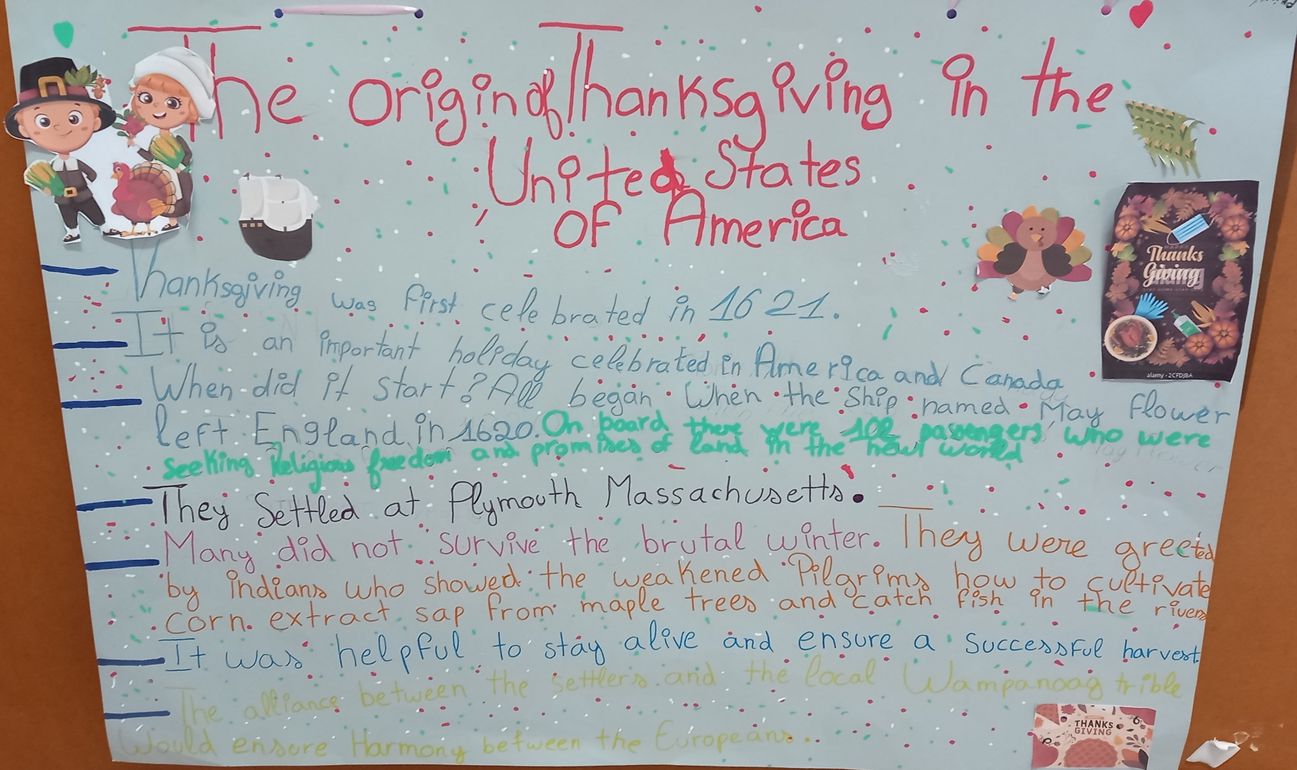 The origin of Thanksgiving in the
United States
of America
Thanks
Giving
alamy - 2CFDJBA
Thanksgiving was first celebrated in 1621.
It is an important holiday celebrated in America and Canada
When did it start? All began when the ship named May flower
left England in 1620. On board there were 102 passengers who were
seeking Religious freedom and promises of land in the new world
They Settled at Plymouth Massachusetts.
Many did not survive the brutal winter. They were greeted
by indians who showed the weakened Pilgrims how to cultivate
corn extract sap from maple trees and catch fish in the rivers
It was helpful to stay alive and ensure a successful harvest
The alliance between the settlers and the local Wampanoag trible
Would ensure Harmony between the Europeans..
THANKS
GIVING